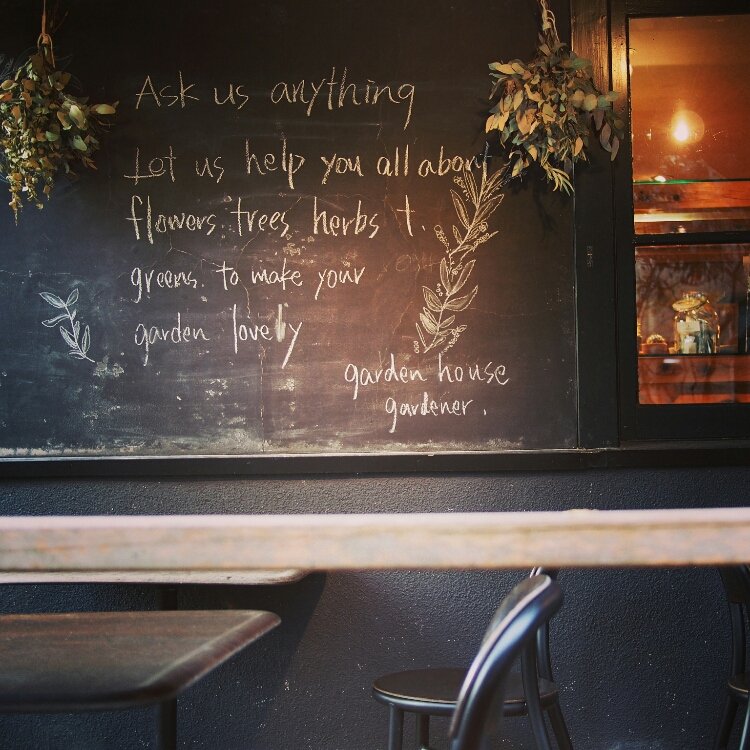 Ask us anything
Let us help you all about
flowers. trees herbs t.
greens. to make your
garden lovely
garden house
gardener.